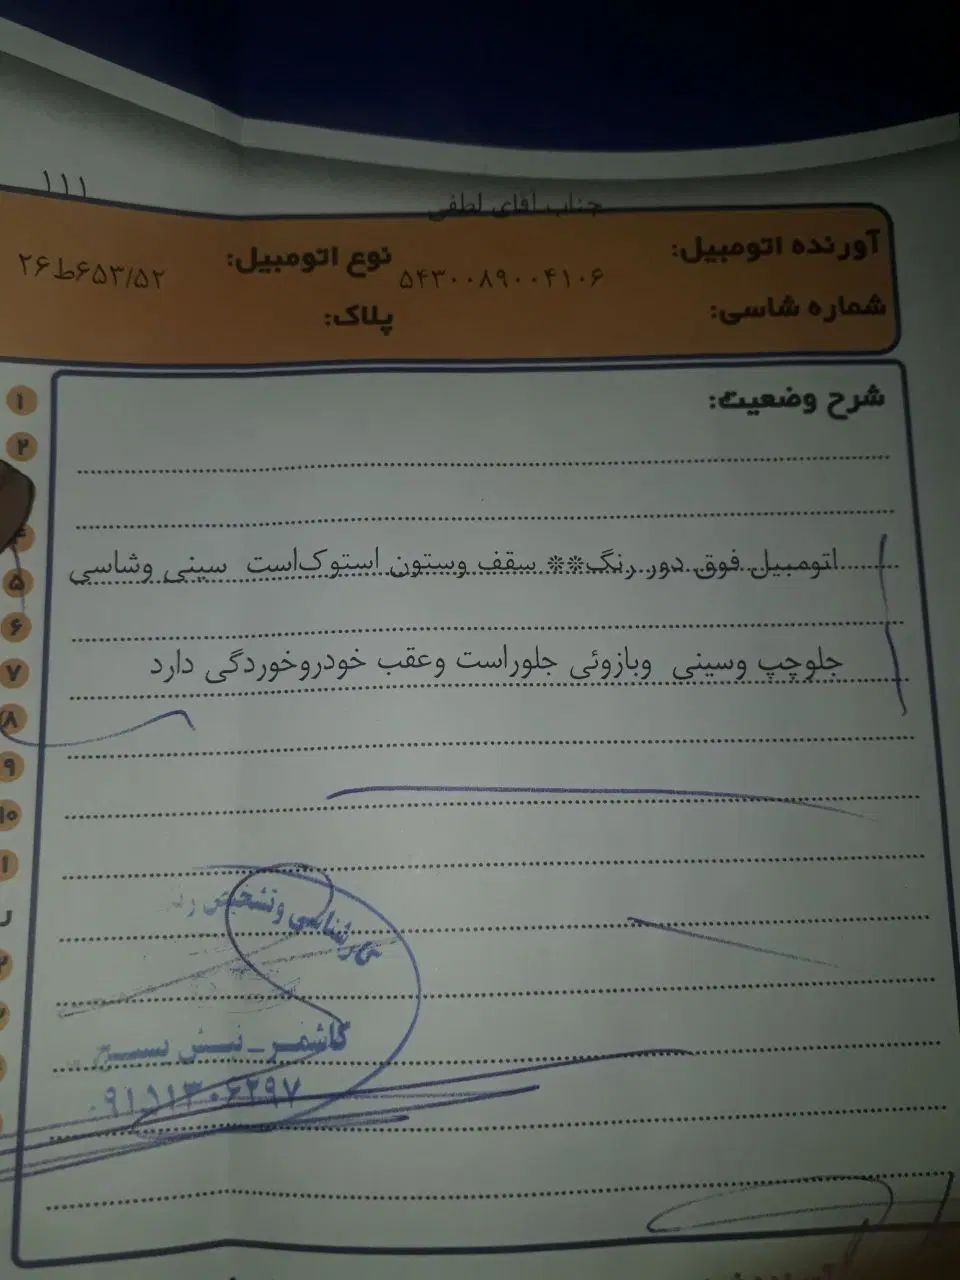 ۱۱۱
جناب آقای لطفی
آورنده اتومبیل:
نوع اتومبیل:
۵۴۳۰۰۸۹۰۰۴۱۰۶
۲۶ط۶۵۳/۵۲
شماره شاسی:
پلاک:
شرح وضعیت:
اتومبیل فوق دور رنگ** سقف وستون استوک‌است سینی وشاسی
جلوچپ وسینی وبازوئی جلوراست وعقب خودروخوردگی دارد
۱
۲
۴
۵
۶
۷
۸
۹
۱۰
کارشناسی وتشخیص
کاشمر - نبش بسیج